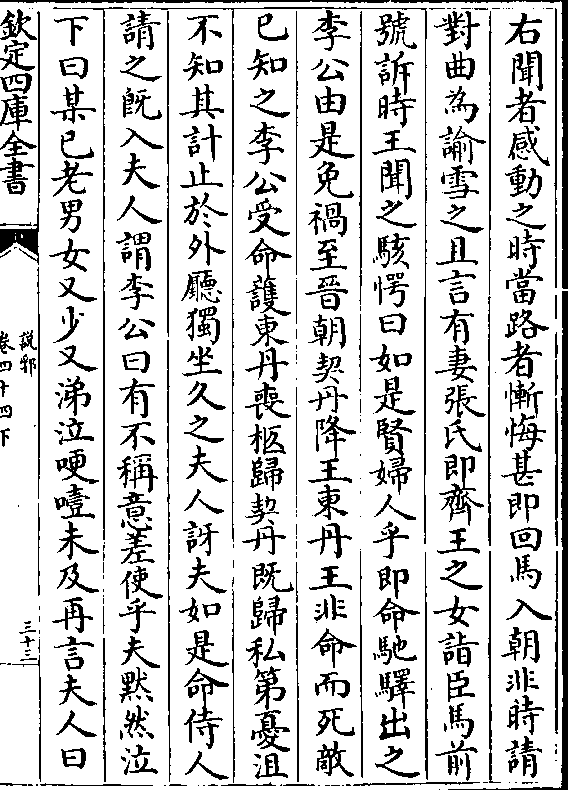 右聞者感動之時當路者慚悔甚即回馬入朝非時請
對曲為諭雪之且言有妻張氏即齊王之女詣臣馬前
號訴時王聞之駭愕曰如是賢婦人乎即命馳驛出之
李公由是免禍至晉朝契丹降王東丹王非命而死敵
已知之李公受命䕶東丹喪柩歸契丹既歸私第憂沮
不知其計止於外廳獨坐久之夫人訝夫如是命侍人
請之既入夫人謂李公曰有不稱意差使乎夫黙然泣
下曰某已老男女又少又涕泣哽噎未及再言夫人曰
欽定四庫全書
說郛
卷四十四下
三十三